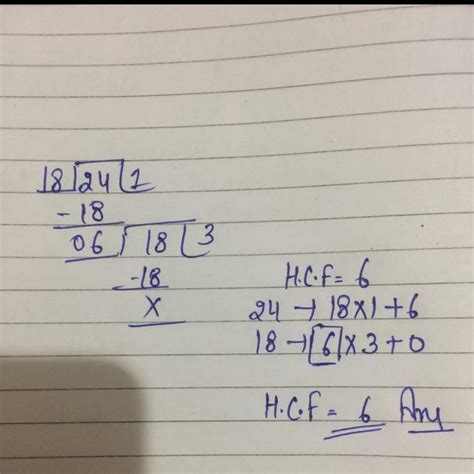 18 24 1
-18
06 18 3
-18
x
H.C.F= 6
24 → 18x1+6
18 → 6x3+0
H.C.F = 6 Ans